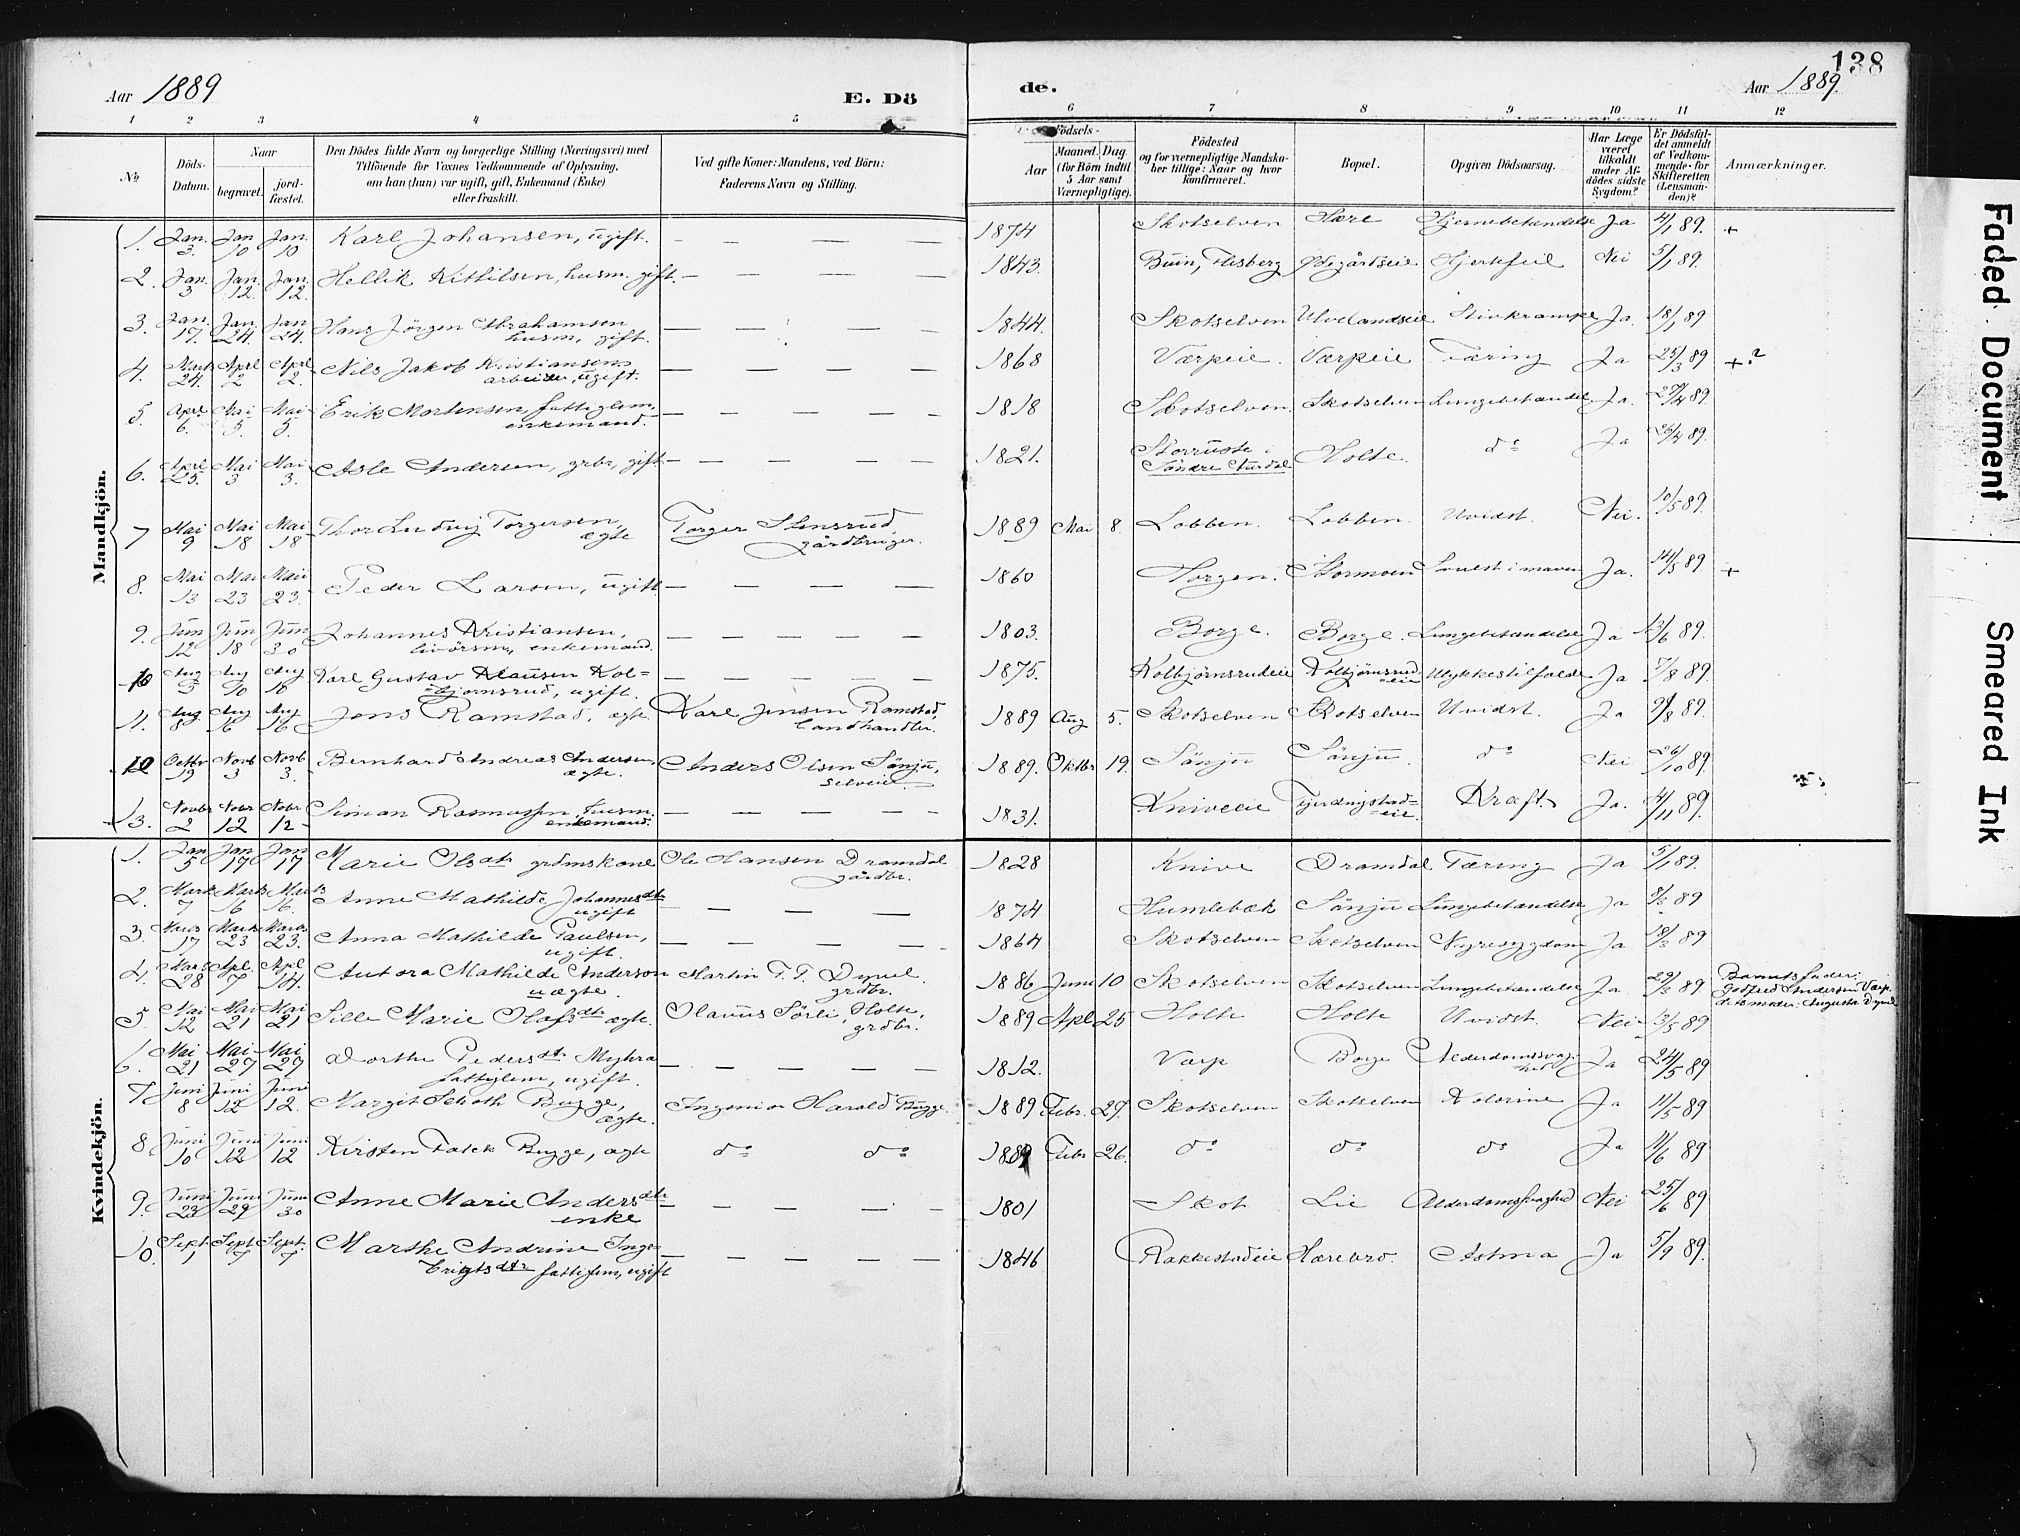 138
Aar 1889
E. Dö
de.
Aar 1889.
1 2 3 4 5 6 7 8 9 10 11 12
No
Döds-Datum.
Naar
begravet.
jord-fæstet.
Den Dödes fulde Navn og borgerlige Stilling (Næringsvei) med
Tilföiende for Voxnes Vedkommende af Oplysning,
om han (hun) var ugift, gift, Enkemand (Enke)
eller fraskilt.
Ved gifte Koner: Mandens, ved Börn:
Faderens Navn og Stilling.
Födsels-
Aar
Maaned. Dag
(for Börn indtil
5 Aar samt
Værnepligtige).
Födested
og for værnepligtige Mandska-
ber tillige: Naar og hvor
konfirmeret.
Bopæl.
Opgiven Dödsaarsag.
Har Læge
været
tilkaldt
under Af-
dödes sidste
Sygdom?
Er Dödsfal-
det anmeldt
af Vedkom-
mende for
Skifteretten
(Lensman-
den)?
Anmærkninger.
Mandkjön.
1. Jan. 3. Jan 10 Jan. 10 Karl Johansen, ugift. — — — — 1874 Skotselven Hære Hjernebetændelse Ja 4/1 89. +
2. Jan. 3 Jan. 12. Jan. 12. Hellik Kittilsen, husm. gift. — — — — 1843. Buin, Flesberg Ødegårdseie Hjertefeil Nei 5/1 89.
3. Jan. 17. Jan. 24. Jan 24. Hans Jörgen Abrahamsen husm, gift. — — — — 1844. Skotselven Ulvelandseie Stivkrampe Ja. 18/1 89
4. Marts 24. Aprl 2 Aprl 2. Nils Jakob Kristiansen arbeider, ugift. — — — — 1868 Værpeie. Værpeie Tæring Ja 25/3 89 +?
5. Aprl 6. Mai 5. Mai 5. Erik Mortensen, fattiglem, enkemand. — — — — 1818 Skotselven. Skotselven Lungebetændel. Ja. 27/4 89.
6. Aprl 25. Mai 3 Mai 3. Asle Andersen, grbr, gift — — — — 1821. Storruste i Søndre Aurdal Holte. do Ja 26/4 89.
7 Mai 9 Mai 18 Mai 18 Thor Ludvig Torgersen, ægte Torger Stensrud gårdbruger. 1889 Mai 8. Lobben. Lobben. Uvidst. Nei. 10/5 89.
8. Mai 13 Mai 23 Mai 23. Peder Larsen, ugift — — — — 1860 Horgen. Stormoen Ja. 14/5 89 +
9. Juni 12 Juni 18 Juni 30 Johannes Kristiansen, livörsm, enkemand. — — — — 1803. Borge. Borge. Lungebetændelse Ja 13/6 89.
10 Aug 3 Aug 10 Aug 18 Karl Gustav Klausen Kolbjørnsrud, ugift. — — — — 1875. Kolbjørnsrudeie Kolbjørnsrudeie Ulykkestilfælde Ja 7/8 89.
11. Aug 8 Aug 16 Aug 16 Jens Ramstad, ægte. Karl Jensen Ramstad, Landhandler. 1889 Aug 5. Skotselven Skotselven Uvidst. Ja 9/8 89.
12 Octbr 19 Novb 3 Novb 3. Bernhard Andreas Andersen, ægte. Anders Olsen Sånju, selveier. 1889. Oktbr 19. Sånju Sånju. do Nei 26/10 89.
13. Novbr 2 Nobr 12 Nobr 12 Simon Rasmussen, husm. enkemand. — — — — 1831. Kniveeie Fjerdingstadeie. Kræft Ja. 4/11 89.
Kvindekjön.
1. Jan 5 Jan 17 Jan 17 Marie Olsdtr grdmskone Ole Hansen Dramdal gårdbr. 1828 Knive Dramdal Tæring Ja 5/1 89.
2. Marts 7 Marts 16 Marts 16. Anne Mathilde Johannesdtr ugift — — — — 1874 Humlebæk Sånju Lungebetændelse Ja 8/3 89
3. Marts 17 Marts 23 Marts 23. Anna Mathilde Paulsen, ugift. — — — — 1864 Skotselven Skotselven Nyresygdom Ja 18/3 89
4. Mars 28 Apl. 7 Apl 14. Autora Mathilde Anderson uægte. Martin T. T. Dynel grdbr. 1886 Juni 10 Skotselven Skotselven Lungebetændelse Ja. 29/3 89 Barnets fader: Godfred Andersen Værp. do moder: Augusta Dynel
5. Mai 12 Mai 21 Mai 21 Sille Marie Olafsdtr ægte. Olavus Sörli, Holte, grdbr. 1889 Apl 25 Holte Holte Uvidst. Nei 13/5 89
6. Mai 21 Mai 27 Mai 27 Dorthe Pedersdtr Myhra fattiglem, ugift. — — — — 1812. Værp Borge Alderdomssvaghed Ja 24/5 89
7 Juni 8 Juni 12 Juni 12. Margit Schoth Bugge, ægte. Ingeniør Harald Bugge. 1889 Febr. 27. Skotselven Skotselven Kolerine Ja 11/5 89
8 Juni 10 Juni 12 Juni 12 Kirsten Falck Bugge, ægte do do 1889 Febr 26. do do do Ja 11/6 89
9. Juni 23 Juni 29 Juni 30 Anne Marie Andersdtr enke — — — — 1801 Skot Lie Alderdomssvaghed Nei 25/6 89
10. Sept. 1 Sept 7 Sept. 7 Marthe Andrine Inge- Erigtsdtr fattiglem, ugift — — — — 1846 Rakkestadeie Hærebro. Astma Ja 5/9 89.
Faded Document
Smeared Ink